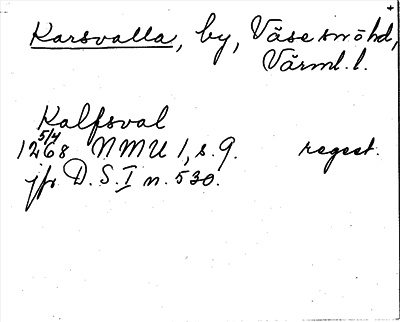 Karsvalla, by, Väse snöhd,
Värml. l.
Kalfsval
5/4
1268 NMU 1, s. 9. regest.
jfr D. S. I n. 530.